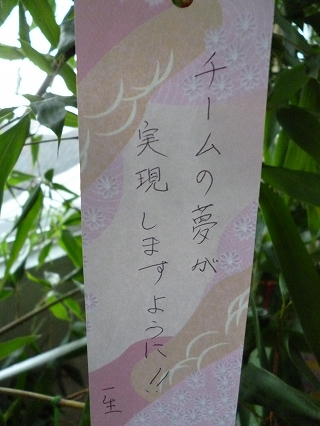 チームの夢が
実現しますように!!
一生